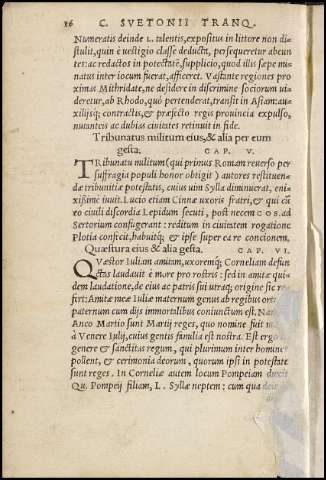 16 C. SVETONII TRANQ.
Numeratis deinde L. talentis, expositus in littore non di=
stulit, quin è uestigio classe deducta, persequeretur abeun
tes: ac redactos in potestatẽ, supplicio, quod illis sæpe mi=
natus inter iocum fuerat, afficeret. Vastante regiones pro
ximas Mithridate, ne desidere in discrimine sociorum ui=
deretur, ab Rhodo, quò pertenderat, transit in Asiam: au=
xilijsq; contractis, & præfecto regis prouincia expulso,
nutanteis ac dubias ciuitates retinuit in fide.
Tribunatus militum eius, & alia per eum
gesta. CAP. V.
TRibunatu militum (qui primus Romam reuerso per
suffragia populi honor obtigit) autores restituen=
dæ tribunitiæ potestatis, cuius uim Sylla diminuerat, eni=
xissimè iuuit. Lucio etiam Cinnæ uxoris fratri, & qui cũ
eo ciuili discordia Lepidum secuti, post necem COS. ad
Sertorium confugerant: reditum in ciuitatem rogatione
Plotia confecit, habuitq; & ipse super ea re concionem.
Quæstura eius & alia gesta. CAP. VI.
QVæstor Iuliam amitam, uxoremq; Corneliam defun
ctas laudauit è more pro rostris: sed in amitæ qui=
dem laudatione, de eius ac patris sui utraq; origine sic re
fert: Amitæ meæ Iuliæ maternum genus ab regibus ortũ
paternum cum dijs immortalibus coniunctum est. Nam
Anco Martio sunt Martij reges, quo nomine fuit
à Venere Iulij, cuius gentis familia est nostra. Est ergo
genere & sanctitas regum, qui plurimum inter homines
pollent, & cerimonia deorum, quorum ipsi in potestate
sunt reges. In Corneliæ autem locum Pompeiam duxit
Qu. Pompeij filiam, L. Syllæ neptem: cum qua dein